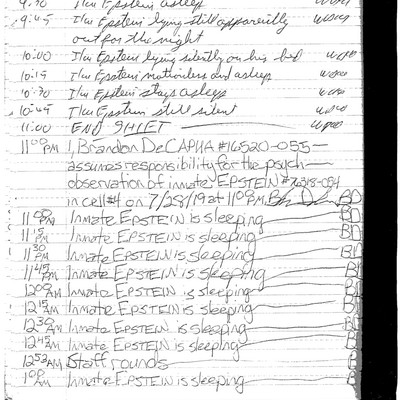 9:30 I/m Epstein asleep
9:45 I/m Epstein lying still apparently
out for the night
10:00 I/m Epstein lying silently on his bed
10:15 I/m Epstein motionless and asleep
10:30 I/m Epstein stays asleep
10:45 I/m Epstein still silent
11:00 END SHIFT
11:00 PM I, Brandon DeCAPUA #16520-055
assumes responsibility for the psych
observation of inmate EPSTEIN #76318-054
in cell #4 on 7/28/19 at 11:00 PM. BD
11:00 PM Inmate EPSTEIN is sleeping BD
11:15 PM Inmate EPSTEIN is sleeping BD
11:30 PM Inmate EPSTEIN is sleeping BD
11:45 PM Inmate EPSTEIN is sleeping BD
12:00 AM Inmate EPSTEIN is sleeping BD
12:15 AM Inmate EPSTEIN is sleeping BD
12:30 AM Inmate EPSTEIN is sleeping
12:45 AM Inmate EPSTEIN is sleeping
12:52 AM Staff rounds
1:00 AM Inmate EPSTEIN is sleeping